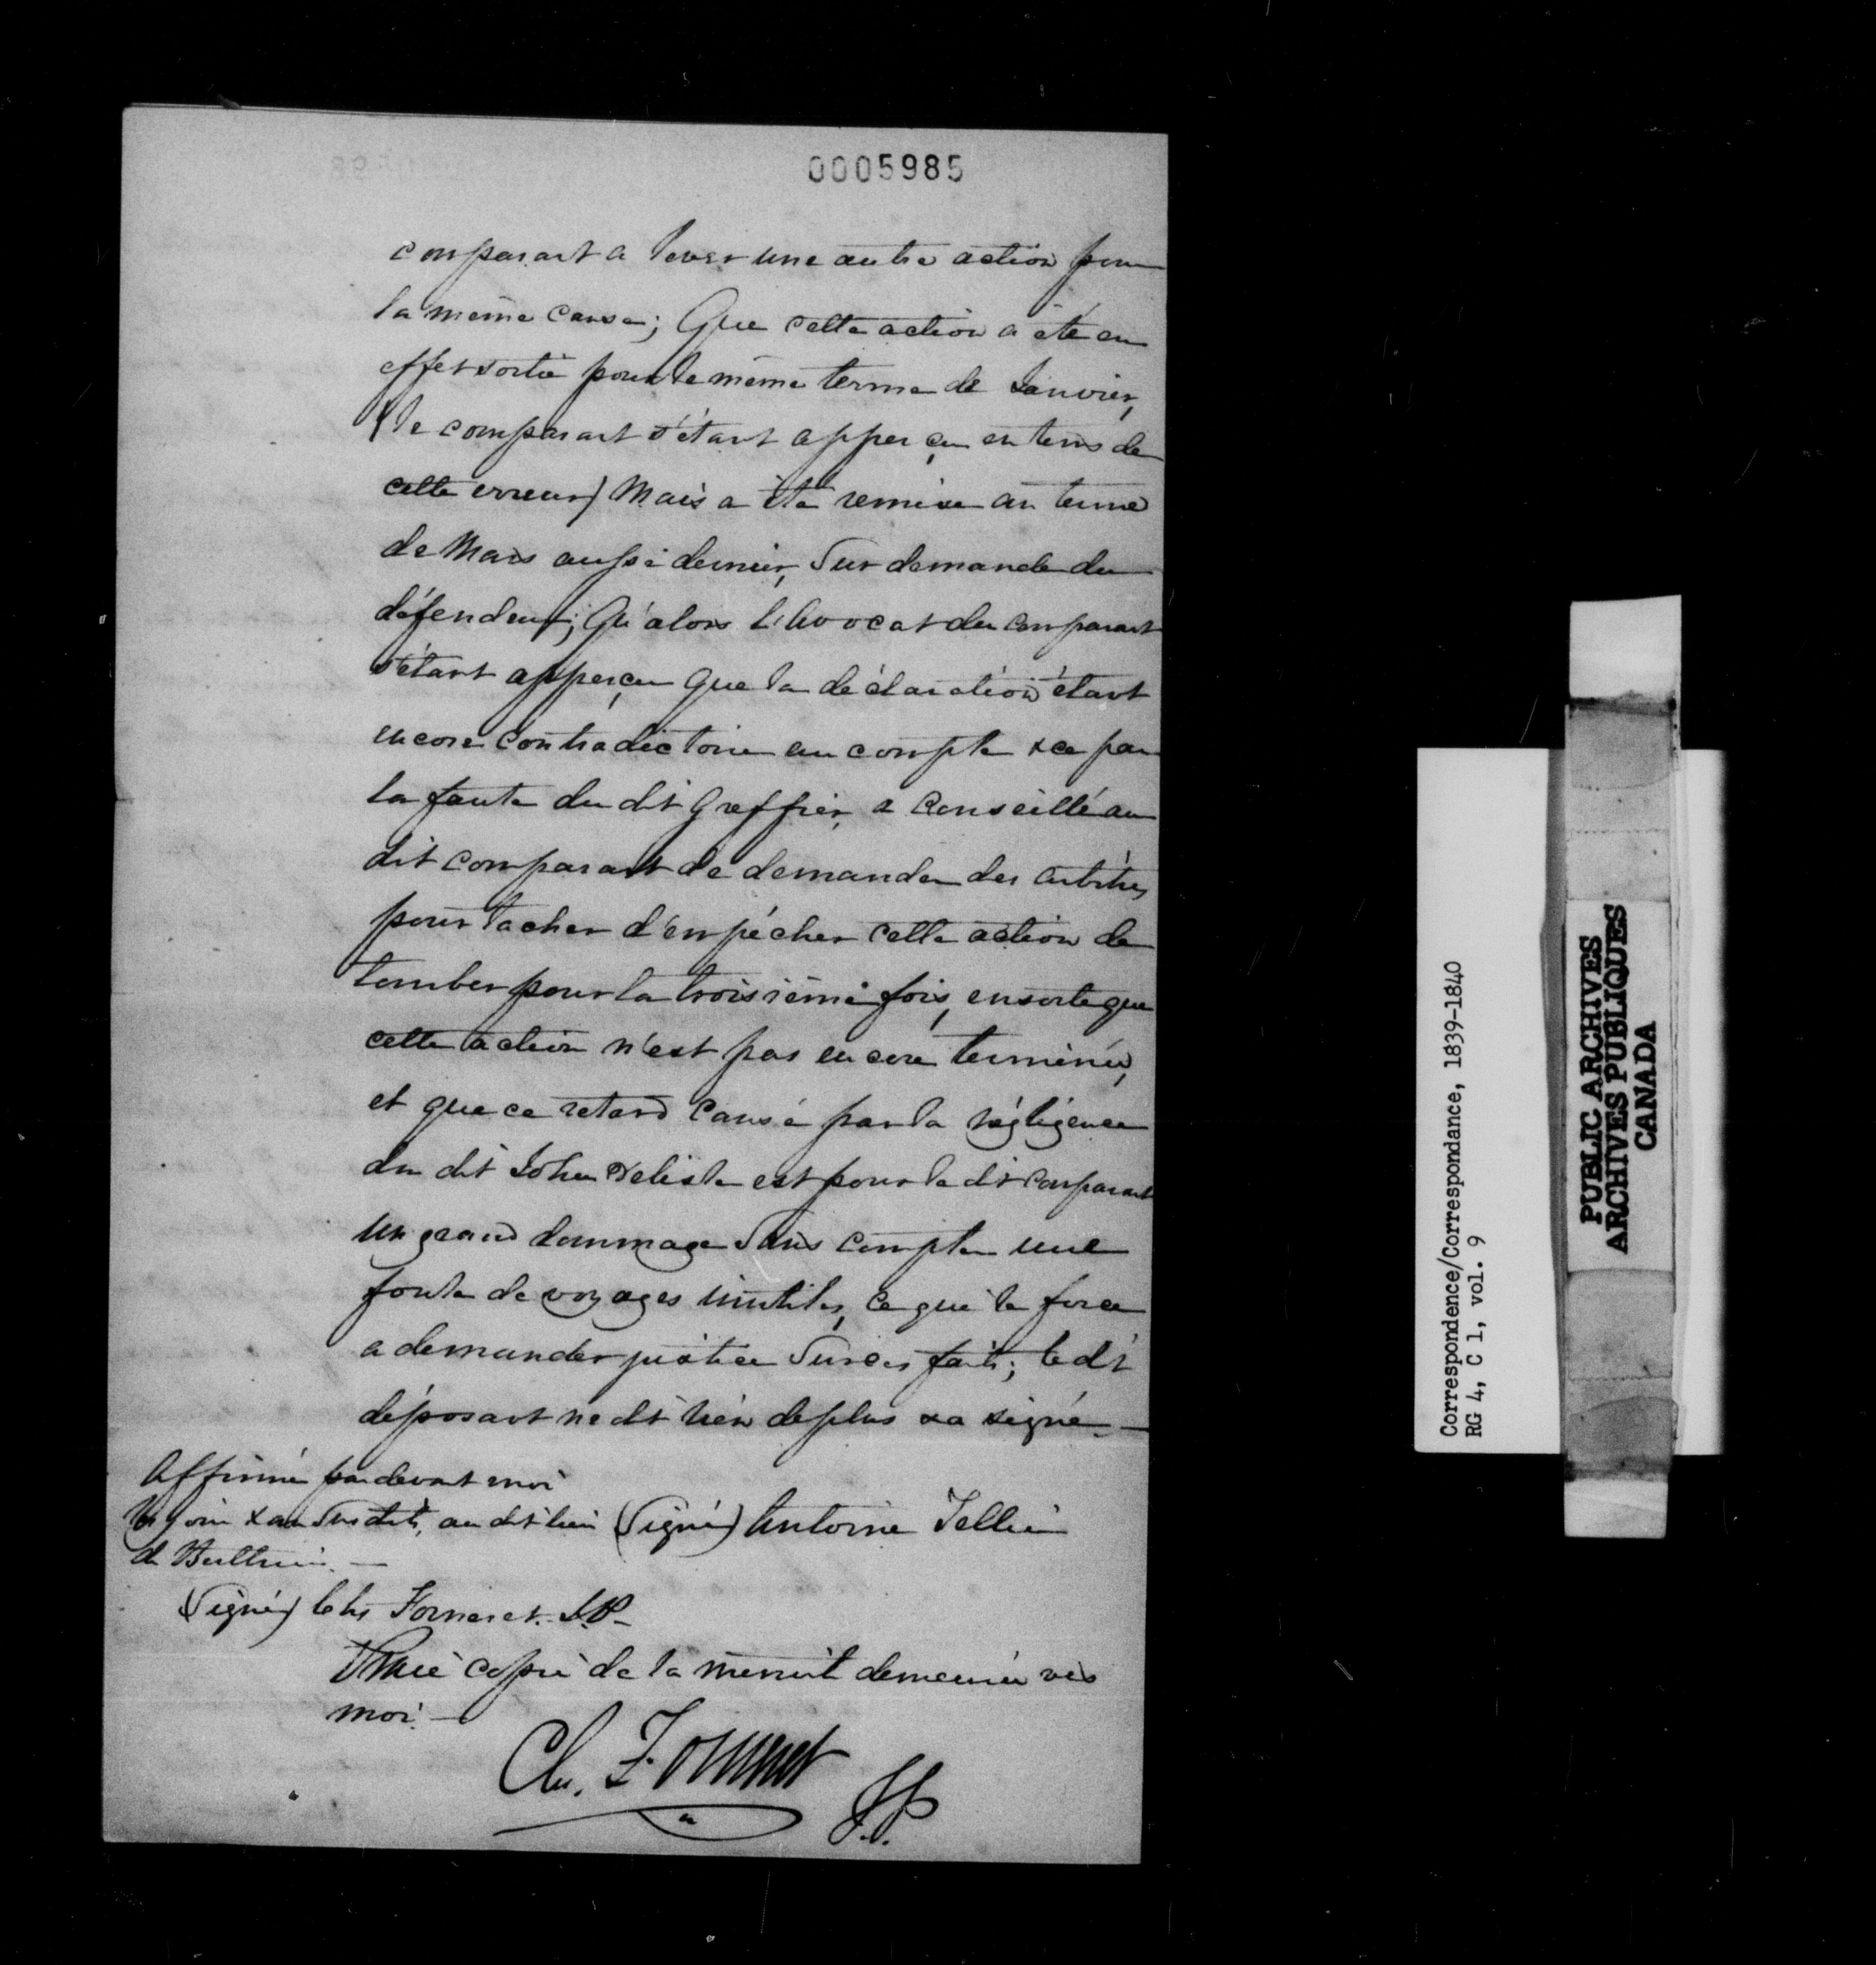 0005985
comparant a lever une autre action pour
la même cause; Que cette action a été en
effet sortie pour le même terme de Janvier,
(le comparant s'étant apperçu en tems de
cette erreur) Mais a été remise au terme
de Mars aussi dernier, Sur demande du
défendeur; Qu'alors l'Avocat du comparant
s'étant apperçu que la déclaration étant
encore contradictoire au compte & ce par
la faute du dit Greffier, a Conseillé au
dit comparant de demander des arbitres
pour tacher d'empécher cette action de
tomber pour la troisième fois, ensorte que
cette action n'est pas encore terminée,
et que ce retard causé par la négligence
du dit John Delisle est pour le dit Comparant
un grand dommage Sans compter une
foule de voyages inutiles, ce qui le force
a demander justice Sur ces faits; le dit
déposant ne dit rien de plus & a signé.—
Affirmé pardevant moi
les jour & an Susdits, au dit lieu (Signé) Antoine Tellier
de Berthier.—
(Signé) Chs Forneret. J.P.
Vraie copie de la minute demeurée vers
moi.—
Ch. Forneret J.P.
Correspondence/Correspondance, 1839-1840
RG 4, C 1, vol. 9
PUBLIC ARCHIVES
ARCHIVES PUBLIQUES
CANADA